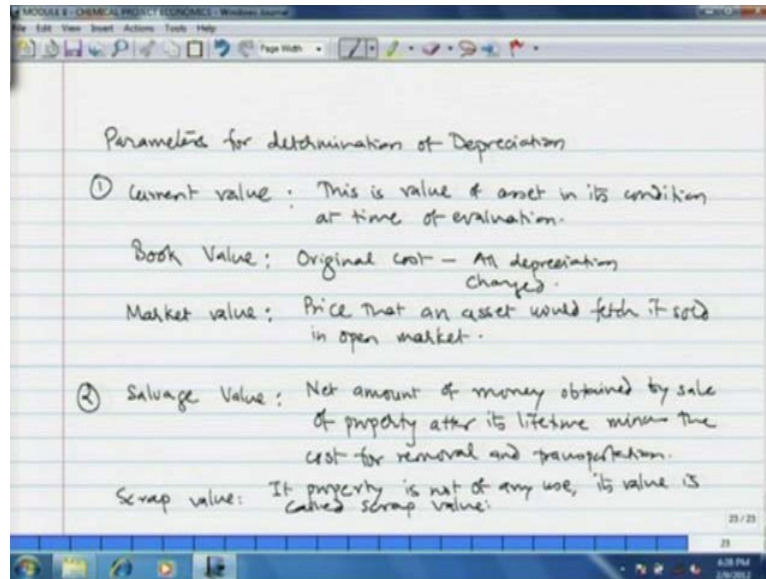 MODULE 8 - CHEMICAL PROJECT ECONOMICS - Windows Journal
File Edit View Insert Actions Tools Help
Page Width
Parameters for determination of Depreciation
① Current value : This is value of asset in its condition
at time of evaluation.
Book Value : Original cost — All depreciation
charged.
Market value : Price that an asset would fetch if sold
in open market.
② Salvage Value : Net amount of money obtained by sale
of property after its lifetime minus the
cost for removal and transportation.
Scrap value: If property is not of any use, its value is
called scrap value.
23 / 23
23
6:28 PM
2/9/2012